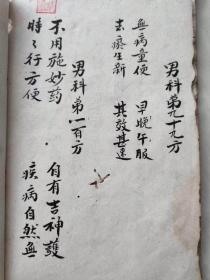 男科第九十九方
無病童便 早晚午服
去瘀生新 其效甚速
男科第一百方
不用施妙药 自有吉神護
時々行方便 疾病自然無